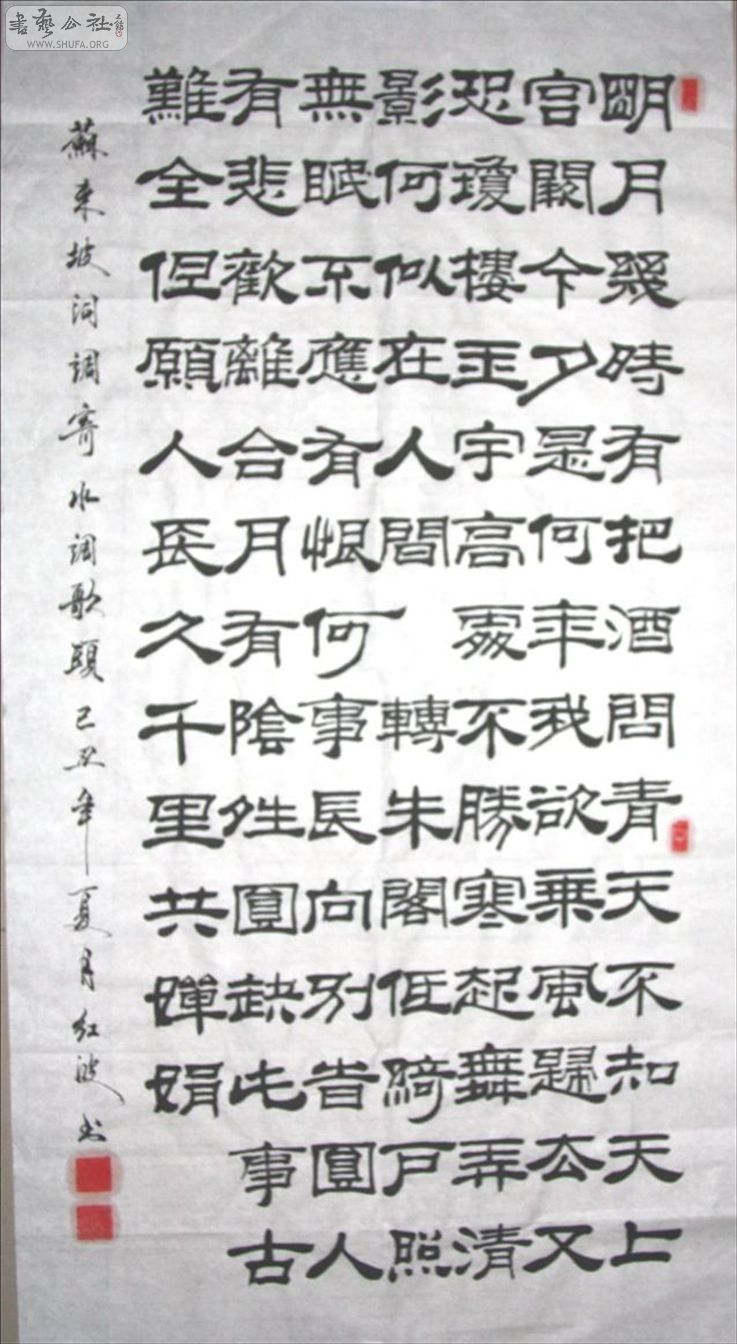 書藝公社
WWW.SHUFA.ORG
明月幾時有把酒問青天不知天上
宮闕今夕是何年我欲乘風歸去又
恐瓊樓玉宇高處不勝寒起舞弄清
影何似在人間 轉朱閣低綺戶照
無眠不應有恨何事長向別旹圓人
有悲歡離合月有陰夝圓缺此事古
難全但願人長久千里共嬋娟
蘇東坡詞調寄水調歌頭己丑年夏月紅波書